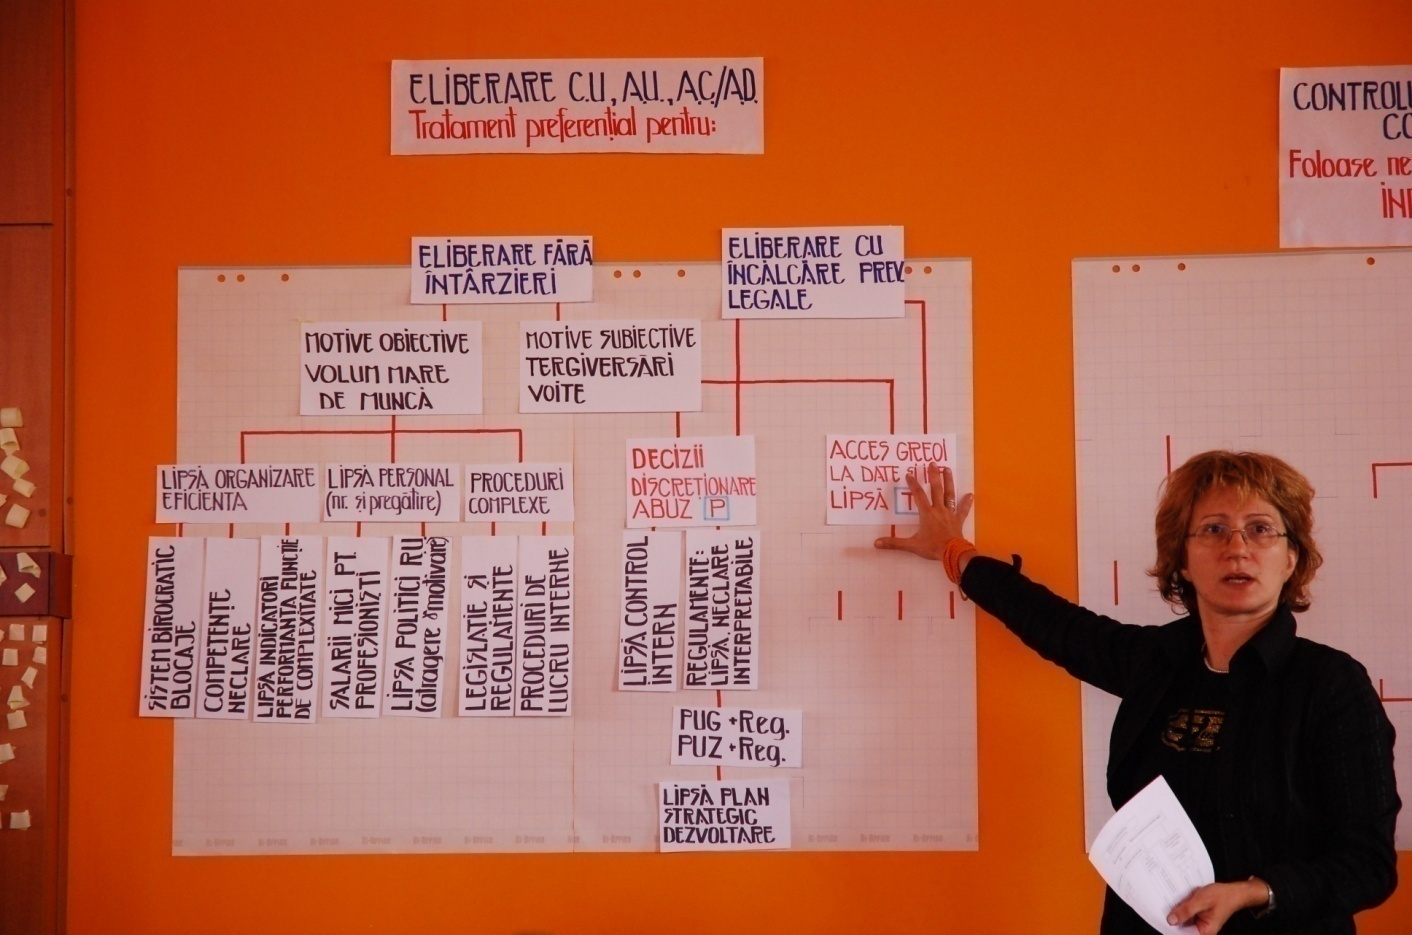 ELIBERARE C.U., A.U., A.C./A.D.
Tratament preferențial pentru:
CONTROLU
CO
Foloase ne
ÎN
ELIBERARE FĂRĂ
ÎNTÂRZIERI
ELIBERARE CU
ÎNCĂLCĂRE PREV.
LEGALE
MOTIVE OBIECTIVE
VOLUM MARE
DE MUNCĂ
MOTIVE SUBIECTIVE
TERGIVERSĂRI
VOITE
LIPSĂ ORGANIZARE
EFICIENTA
LIPSĂ PERSONAL
(nr. și pregătire)
PROCEDURI
COMPLEXE
DECIZII
DISCREȚIONARE
ABUZ P
ACCES GREOI
LA DATE
LIPSĂ T
SISTEM BIROCRATIC
BLOCAJE
COMPETENȚE
NECLARE
LIPSĂ INDICATORI
PERFORMANTA FUNCȚIE
DE COMPLEXITATE
SALARII MICI PT.
PROFESIONIȘTI
LIPSA POLITICI RU
(atragere și motivare)
LEGISLAȚIE ȘI
REGULAMENTE
PROCEDURI DE
LUCRU INTERNE
LIPSĂ CONTROL
INTERN
REGULAMENTE:
LIPSĂ, NECLARE
INTERPRETABILE
PUG +Reg.
PUZ +Reg.
LIPSĂ PLAN
STRATEGIC
DEZVOLTARE